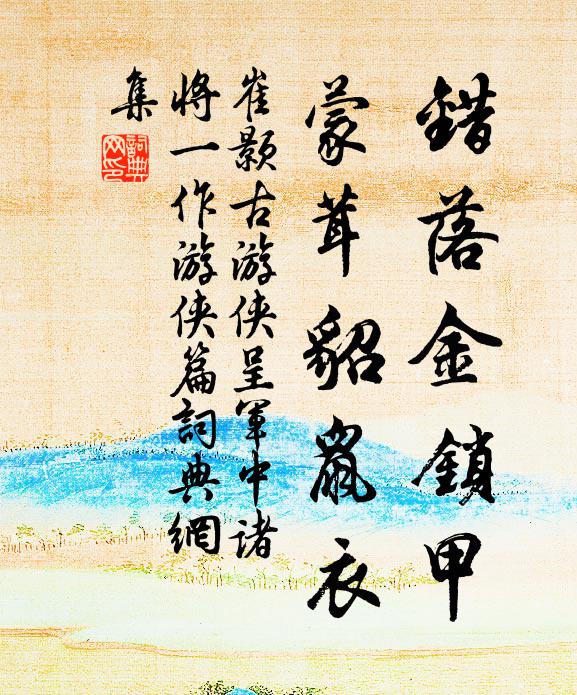 錯落金鎖甲
蒙茸貂鼠衣
崔顥古游俠呈軍中諸
將一作游俠篇詞典網
集
詞典
网印